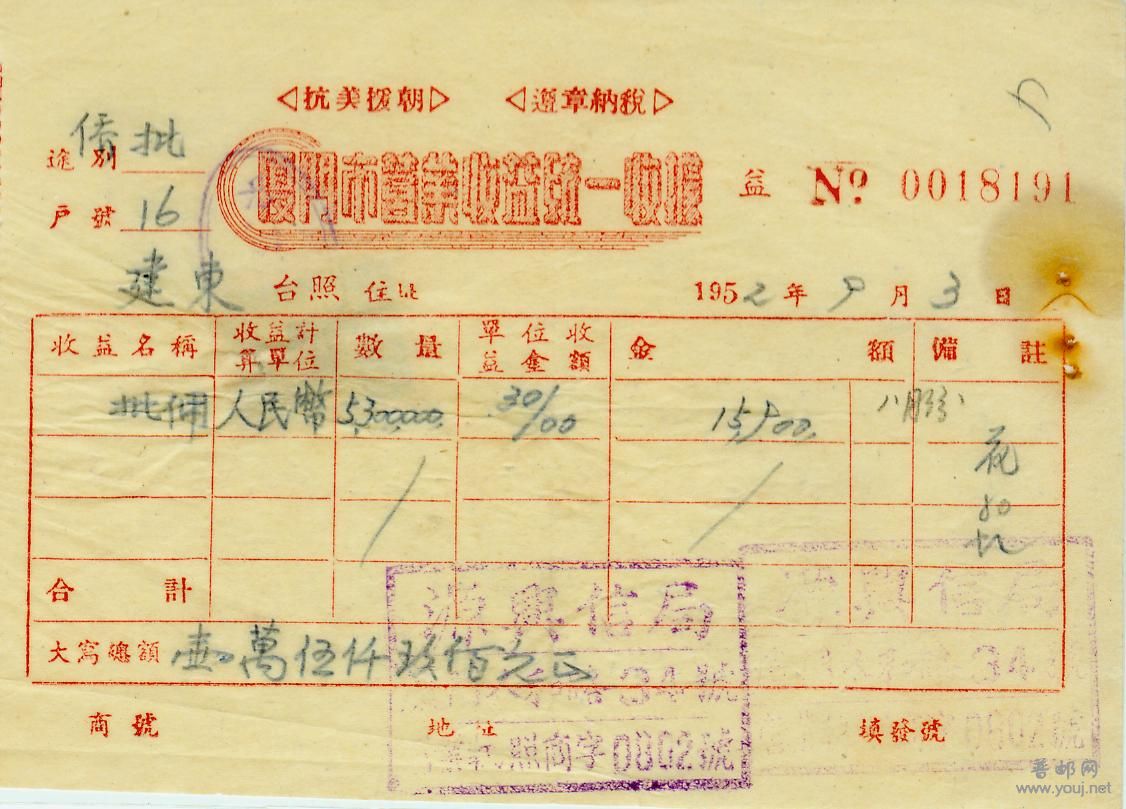 ◁抗美援朝▷ ◁遵章納稅▷
途別 僑批
廈門市營業收益統一收據
益 No. 0018191
戶號 16
建東 台照 住址
1952年9月3日
收益名稱 收益計算單位 數量 單位收益金額 金額 備註
批佣 人民幣 5,300,000. 30/00 15,900. 八月份
花
80
合計
大寫總額 壹萬伍仟玖佰元正
源興信局
34號
照商字0802號
源興信局
34
0802號
商號 地址 填發號
普邮网
www.youj.net